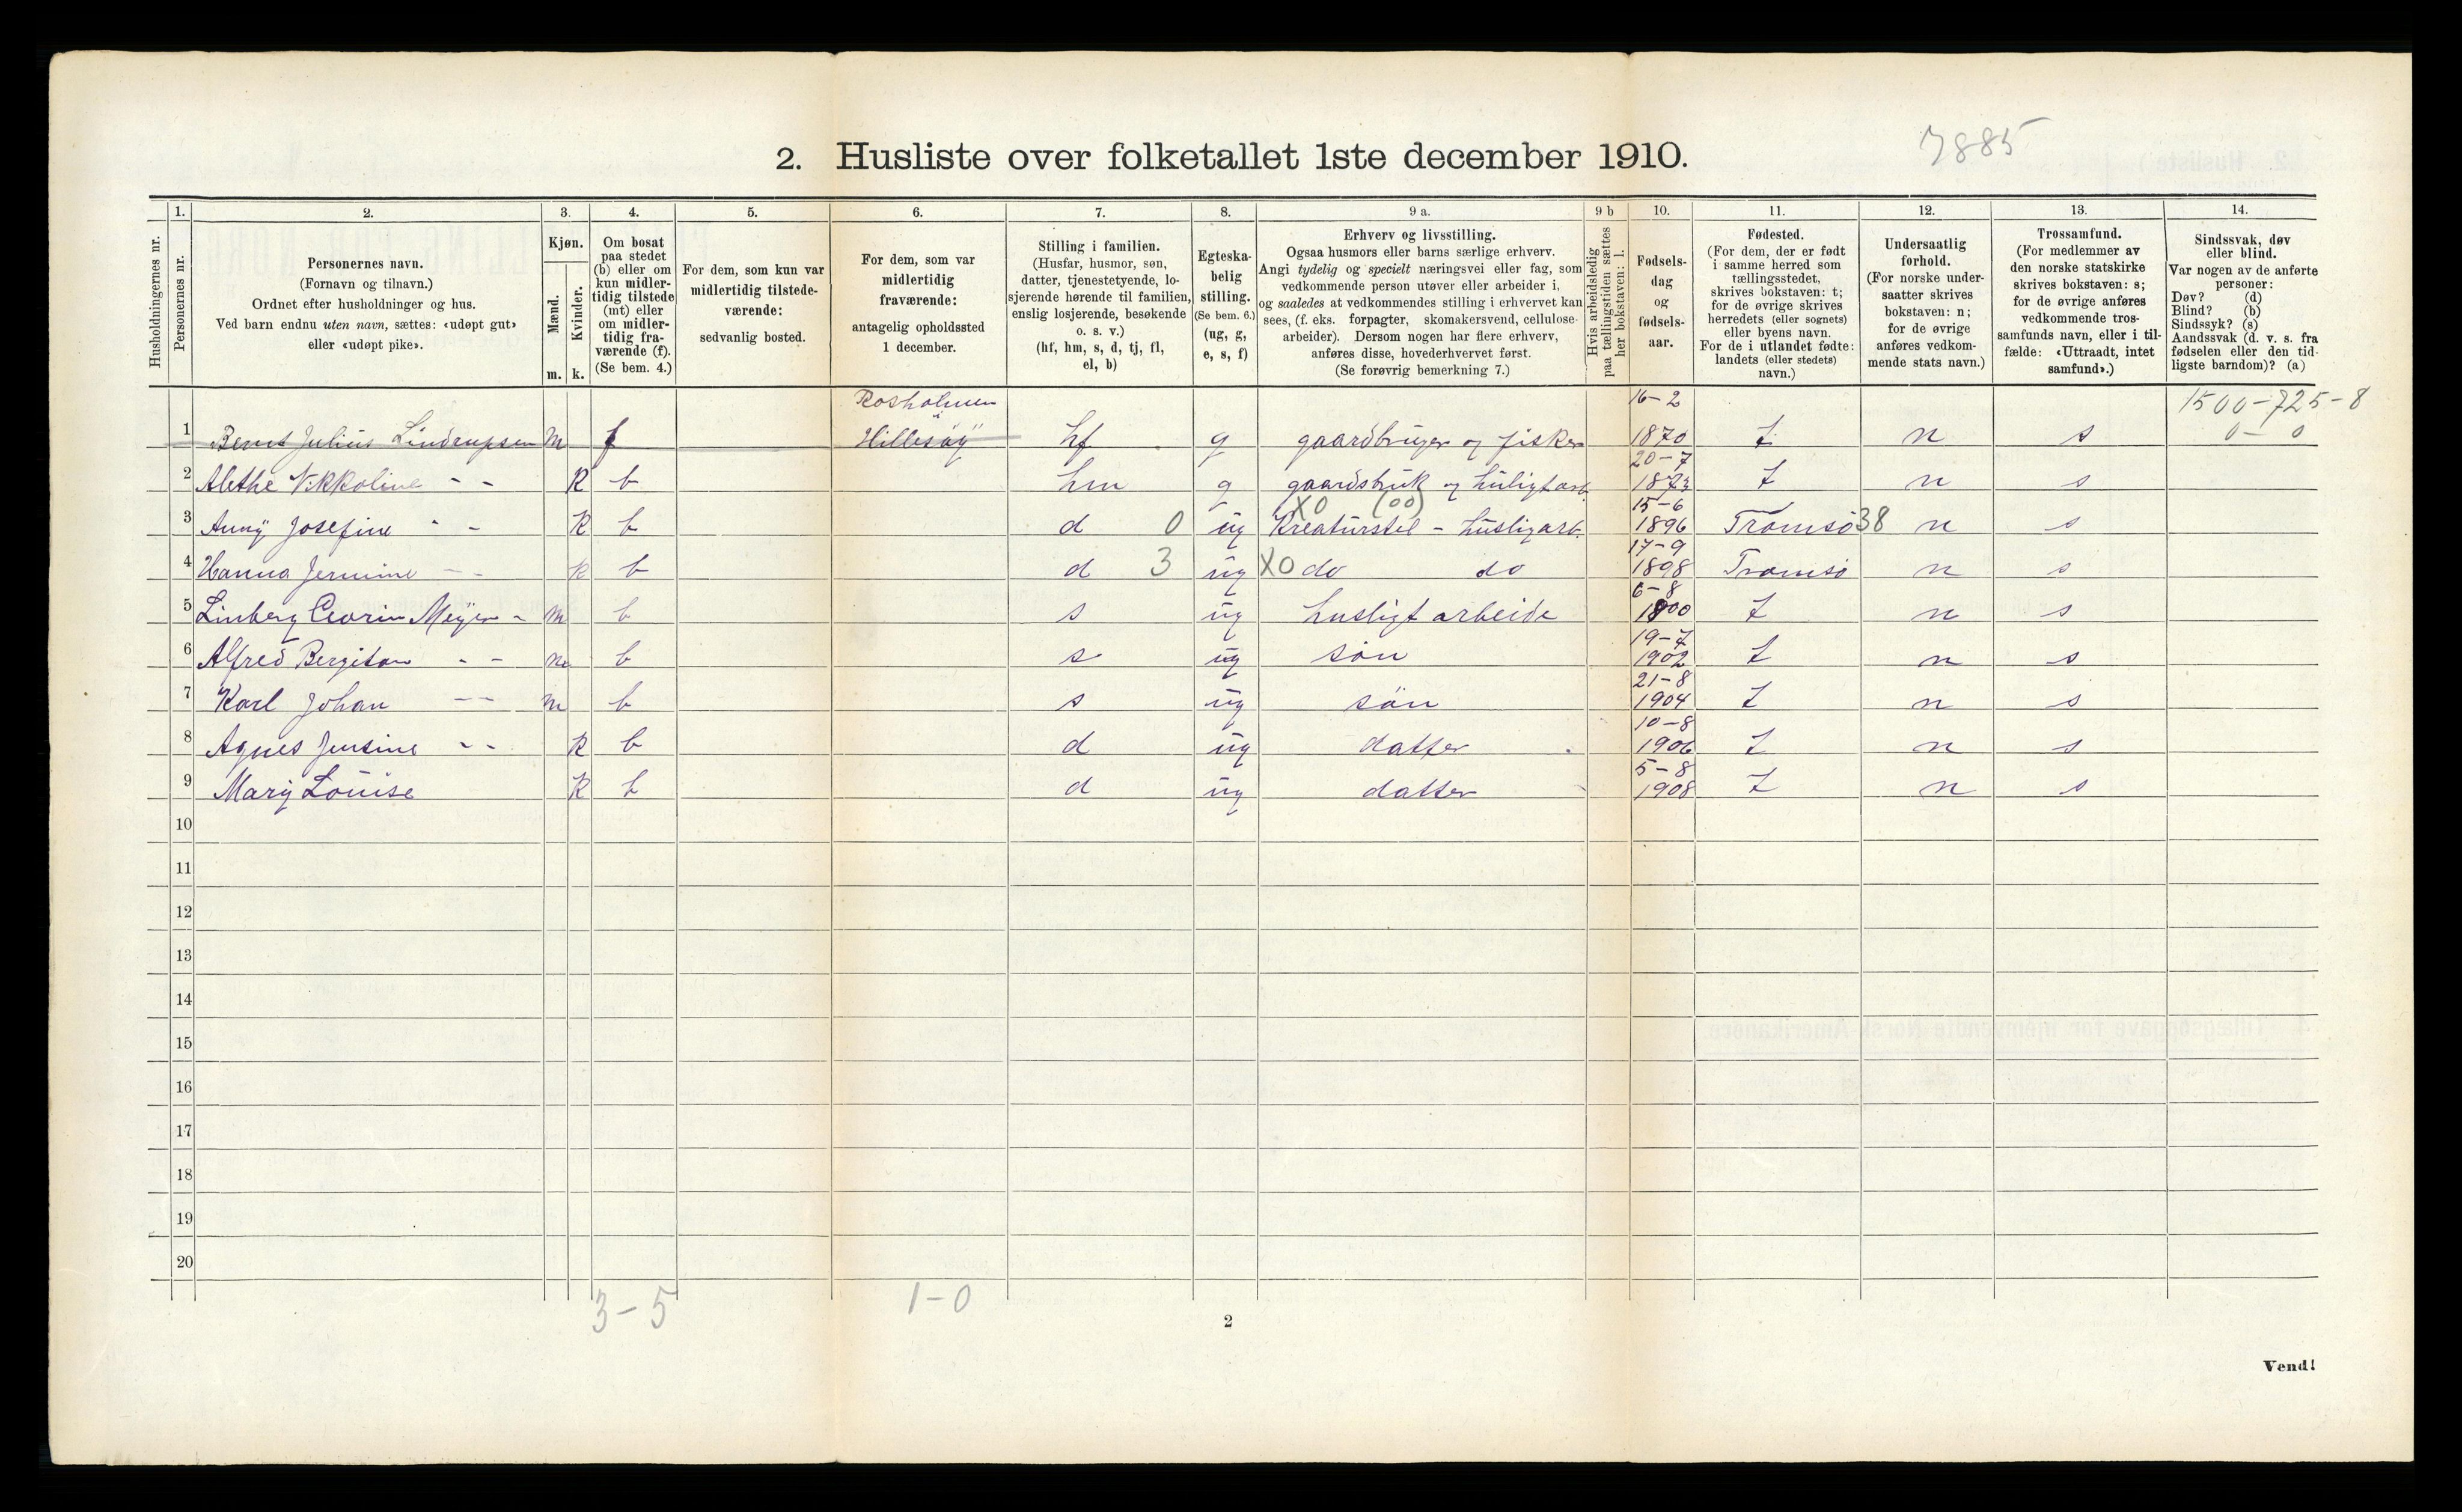 7885
2. Husliste over folketallet 1ste december 1910.
Husholdningernes nr.
1.
Personernes nr.
2.
Personernes navn.
(Fornavn og tilnavn.)
Ordnet efter husholdninger og hus.
Ved barn endnu uten navn, sættes: «udøpt gut»
eller «udøpt pike».
3.
Kjøn.
Mænd.
Kvinder.
m. k.
4.
Om bosat
paa stedet
(b) eller om
kun midler-
tidig tilstede
(mt) eller
om midler-
tidig fra-
værende (f).
(Se bem. 4.)
5.
For dem, som kun var
midlertidig tilstede-
værende:
sedvanlig bosted.
6.
For dem, som var
midlertidig
fraværende:
antagelig opholdssted
1 december.
7.
Stilling i familien.
(Husfar, husmor, søn,
datter, tjenestetyende, lo-
sjerende hørende til familien,
enslig losjerende, besøkende
o. s. v.)
(hf, hm, s, d, tj, fl,
el, b)
8.
Egteska-
belig
stilling.
(Se bem. 6.)
(ug, g,
e, s, f)
9 a.
Erhverv og livsstilling.
Ogsaa husmors eller barns særlige erhverv.
Angi tydelig og specielt næringsvei eller fag, som
vedkommende person utøver eller arbeider i,
og saaledes at vedkommendes stilling i erhvervet kan
sees, (f. eks. forpagter, skomakersvend, cellulose-
arbeider). Dersom nogen har flere erhverv,
anføres disse, hovederhvervet først.
(Se forøvrig bemerkning 7.)
9 b
Hvis arbeidsledig
paa tællingstiden sættes
her bokstaven: l.
10.
Fødsels-
dag
og
fødsels-
aar.
11.
Fødested.
(For dem, der er født
i samme herred som
tællingsstedet,
skrives bokstaven: t;
for de øvrige skrives
herredets (eller sognets)
eller byens navn.
For de i utlandet fødte:
landets (eller stedets)
navn.)
12.
Undersaatlig
forhold.
(For norske under-
saatter skrives
bokstaven: n;
for de øvrige
anføres vedkom-
mende stats navn.)
13.
Trossamfund.
(For medlemmer av
den norske statskirke
skrives bokstaven: s;
for de øvrige anføres
vedkommende tros-
samfunds navn, eller i til-
fælde: «Uttraadt, intet
samfund».)
14.
Sindssvak, døv
eller blind.
Var nogen av de anførte
personer:
Døv? (d)
Blind? (b)
Sindssyk? (s)
Aandssvak (d. v. s. fra
fødselen eller den tid-
ligste barndom)? (a)
Rosholmen 16-2 1500-725-8
1 Bernt Julius Lindrupsen m f Hillesøy hf g gaardbruger og fisker 1870 t n s 0-0
20-7
2 Alethe Nikkoline - - k b hm g gaardsbruk og huligt arb. 1873 t n s
X0 (00) 15-6
3 Anny Josefine - - k b d 0 ug Kreaturstel - husligarb. 1896 Tromsø 38 n s
17-9
4 Hanna Jermine - - k b d 3 ug X0 do do 1898 Tromsø n s
6-8
5 Linberg Meyer - m b s ug husligt arbeide 1900 t n s
19-7
6 Alfred Bergiton - - m b s ug søn 1902 t n s
21-8
7 Karl Johan - - m b s ug søn 1904 t n s
10-8
8 Agnes Jensine - - k b d ug datter 1906 t n s
5-8
9 Mary Louise k b d ug datter 1908 t n s
10
11
12
13
14
15
16
17
18
19
20
3-5 1-0
2
Vend!